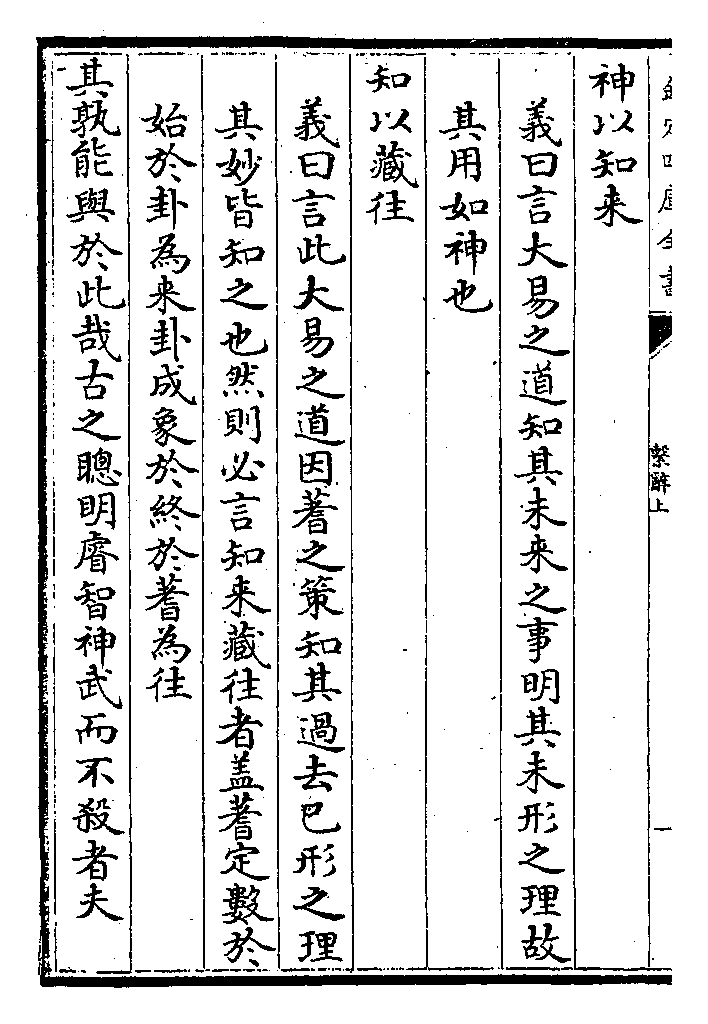 欽定四庫全書
繫辭上
一
神以知来
義曰言大易之道知其未来之事明其未形之理故
其用如神也
知以藏往
義曰言此大易之道因蓍之策知其過去已形之理
其妙皆知之也然則必言知来藏往者盖蓍定數於
始於卦為来卦成象於終於蓍為往
其孰能與於此哉古之聰明睿智神武而不殺者夫